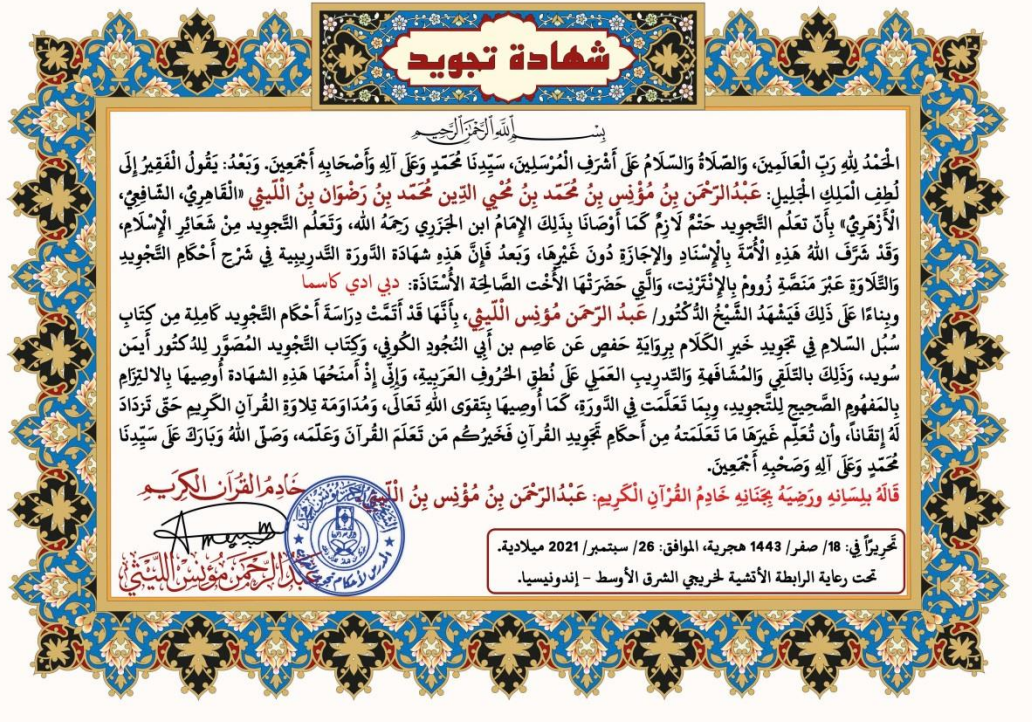 شهادة تجويد
بِسْمِ اللَّهِ الرَّحْمَٰنِ الرَّحِيمِ
الْحَمْدُ لِلهِ رَبِّ الْعَالَمِينَ، وَالصَّلَاةُ وَالسَّلَامُ عَلَى أَشْرَفِ الْمُرْسَلِينَ، سَيِّدِنَا مُحَمَّدٍ وَعَلَى آلِهِ وَأَصْحَابِهِ أَجْمَعِينَ. وَبَعْدُ: يَقُولُ الْفَقِيرُ إِلَى
لُطِفِ الْمَلِكِ الْجَلِيلِ: عَبْدُالرَّحْمَنِ بِنُ مُؤْنِسِ بِنُ مُحَمَّد بِنُ مُحْيِي الدِّينِ مُحَمَّد بِنُ رَضْوَان بِنُ اللَّيثِي «الْقَاهِرِيُّ، الشَّافِعِيُّ،
الْأَزْهَرِيُّ» بِأَنَّ تَعَلُّم التَّجوِيد حَتْمٌ لَازِمٌ كَمَا أَوْصَانَا بِذَلِكَ الإِمَامُ ابن الجَزَرِي رَحِمَهُ الله، وَتَعَلُّم التَّجوِيد مِنْ شَعَائِرِ الْإِسْلَامِ،
وَقَدْ شَرَّفَ اللهُ هَذِهِ الْأُمَّةَ بِالْإِسْنَادِ والإِجَازَةِ دُونَ غَيْرِهَا، وَبَعدُ فَإِنَّ هَذِهِ شهَادَة الدَّورَة التَّدرِيبِية فِي شَرْحِ أَحْكَامِ التَّجْوِيدِ
وَالتَّلَاوَةِ عَبْرَ مَنَصَّةِ زُووم بِالإِنْتَرْنِت، وَالَّتِي حَضَرَتْهَا الأُخْت الصَّالِحَة الأُسْتَاذَة: دبي ادي كاسما
وبِناءًا عَلَى ذَلِكَ فَيَشْهَدُ الشَّيْخُ الدُّكْتُور/ عَبدُ الرّحمَن مُؤْنِس اللَّيثِي، بِأَنَّهَا قَدْ أَتَمَّتْ دِرَاسَةَ أَحْكَام التَّجْوِيد كَامِلِة مِن كِتَابِ
سُبُل السّلامِ فِي تَجوِيدِ خَيرِ الكَلَام بِروَايَةِ حَفصٍ عَن عَاصِم بن أَبِي النُّجُودِ الكُوفِي، وَكِتَاب التَّجْوِيد المُصَوَّر لِلدُكتُور أَيمَن
سُويد، وَذَلِكَ بالتَّلَقِي وَالمُشَافَهةِ وَالتَّدرِيبِ العَمَلِي عَلَى نُطقِ الحُرُوفِ العَرَبِيةِ، وَإِنِّي إِذْ أَمنَحُهَا هَذِهِ الشهَادة أُوصِيهَا بِالالتِزَامِ
بِالمَفهُومِ الصَّحِيحِ لِلتَّجوِيدِ، وبِمَا تَعَلَّمَت فِي الدَّورَةِ، كَمَا أُوصِيهَا بِتَقوَى اللهِ تَعَالَى، وَمُدَاوَمَة تِلاوَةِ القُرآنِ الكَرِيمِ حَتَّى تَزدَادَ
لَهُ إِتقَاناً، وأن تُعَلِّم غَيرَهَا مَا تَعَلَّمَتهُ مِن أَحكَامِ تَجْوِيدِ القُرآنِ فَخَيرُكُم مَن تَعَلَمَ القُرآنَ وَعَلّمَه، وَصَلّى اللهُ وَبَارَكَ عَلَى سَيِّدِنَا
مُحَمَّدٍ وَعَلَى آلِهِ وَصَحْبِهِ أَجْمَعِينَ.
قَالَهُ بِلِسَانِهِ ورَضِيَهُ بِجَنَانِهِ خَادِمُ القُرْآنِ الْكَرِيمِ: عَبْدُالرَّحْمَنِ بِنُ مُؤْنِس بِنُ اللَّيثِي
خَادِمُ القُرآن الكَرِيم
عَبْدُ الرَّحْمَن مُؤنِس اللَّيْثِي
تَحْرِيرًا فِي: 18/ صفر/ 1443 هجرية، الموافق: 26/ سبتمبر/ 2021 ميلادية.
تحت رعاية الرابطة الأتشية لخريجي الشرق الأوسط – إندونيسيا.